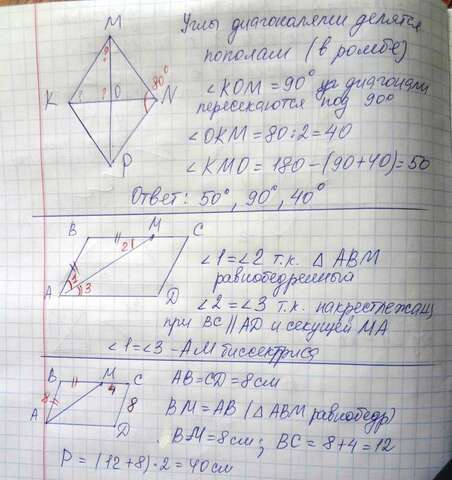 Углы диагоналями делятся
пополам (в ромбе)
∠КОМ = 90° диагонали
пересекаются под 90°
∠ОКМ = 80:2 = 40
∠КМО = 180 - (90 + 40) = 50
Ответ: 50°, 90°, 40°
M
?
80°
K ? ? O N
P
B M C
2
1
3
A D
∠1 = ∠2 т.к. △ АВМ
равнобедренный
∠2 = ∠3 т.к. накрестлежащ
при ВС || AD и секущей МА
∠1 = ∠3 - АМ биссектриса
B M C
4
8 8
A D
AB = CD = 8 см
BM = AB (△ ABM равнобедр)
BM = 8 см; BC = 8 + 4 = 12
P = (12 + 8) · 2 = 40 см